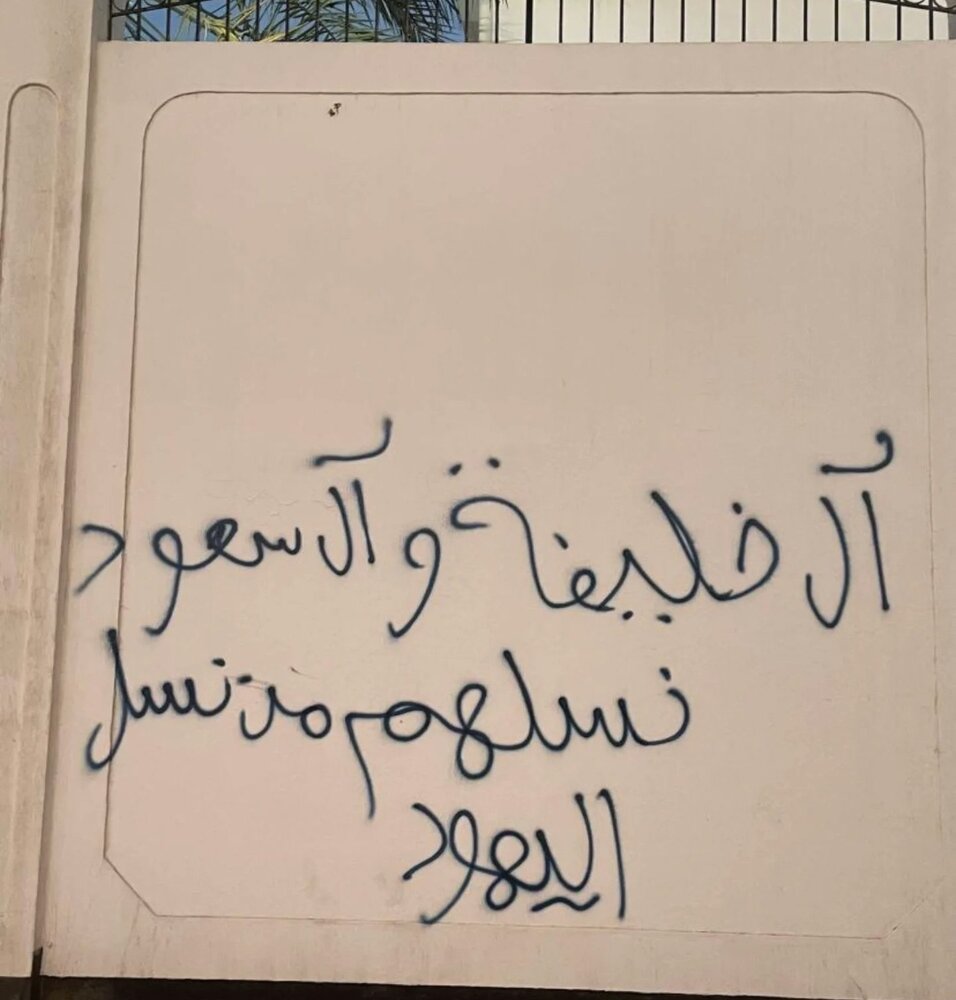 آل خليفة و آل سعود
نسلهم من نسل
اليهود